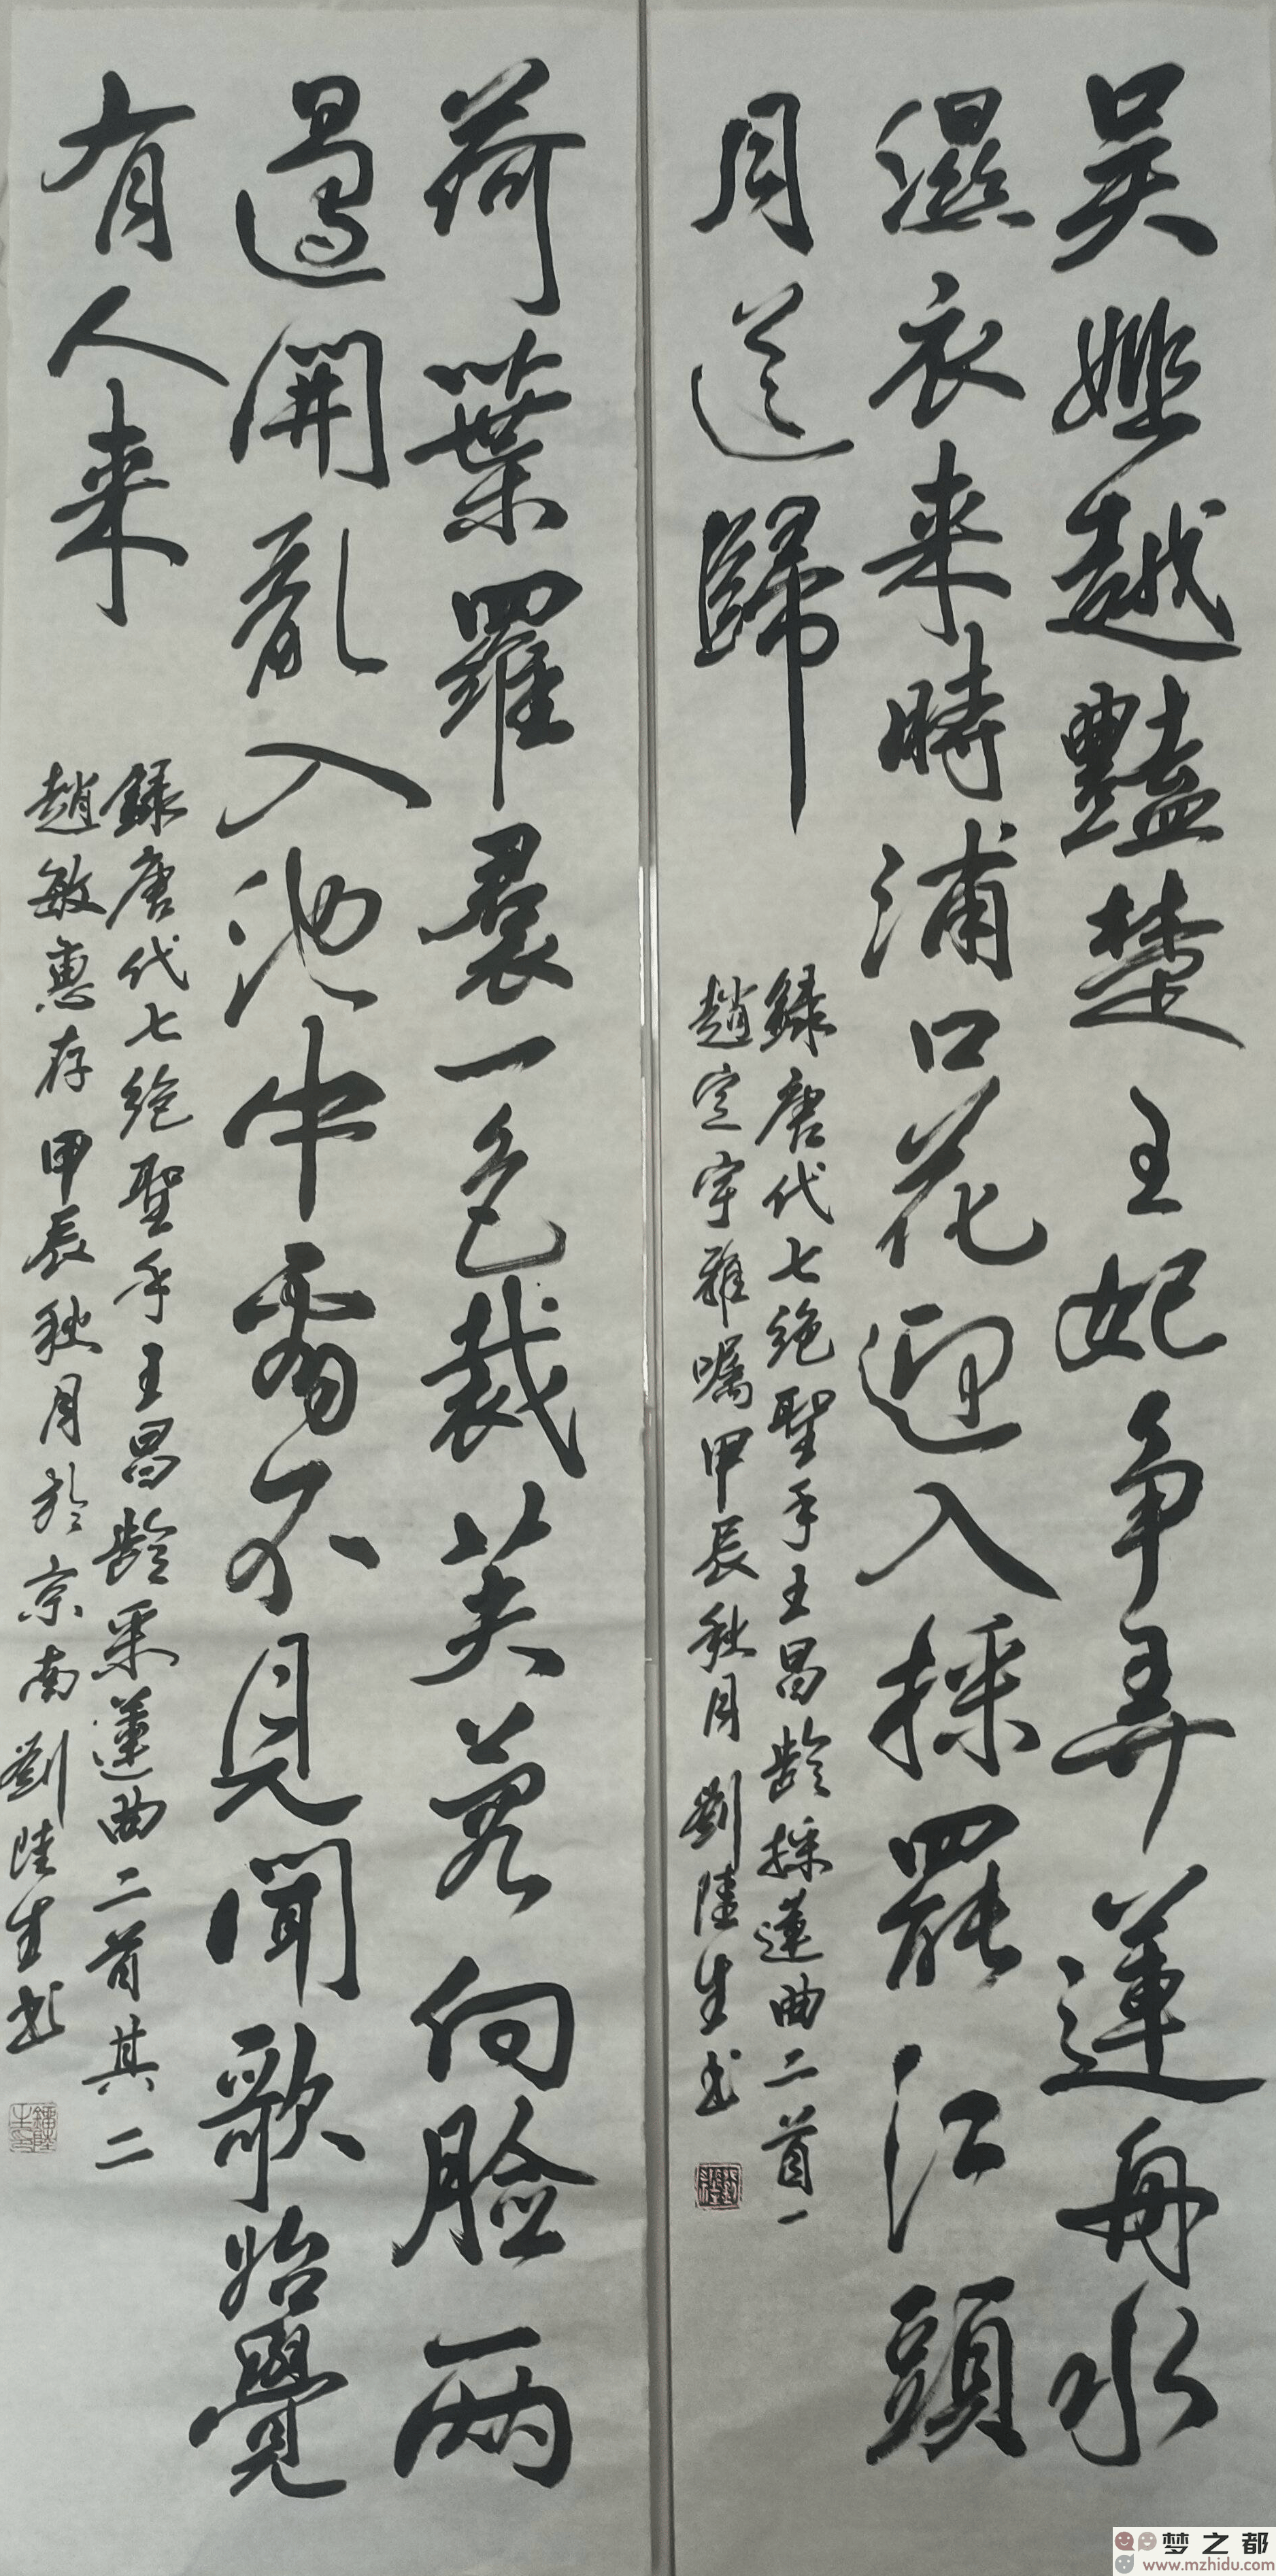 吴姬越豔楚王妃争弄蓮舟水
濕衣来時浦口花迎入採罷江頭
月送歸
録唐代七绝聖手王昌齡採蓮曲二首一
趙定宇雅嘱甲辰秋月劉陸生书
荷葉羅裠一色裁芙蓉向臉兩
邊開亂入池中看不見聞歌始覺
有人来
録唐代七绝聖手王昌齡采蓮曲二首其二
趙敏惠存甲辰秋月於京南劉陸生书
梦之都
www.mzhidu.com